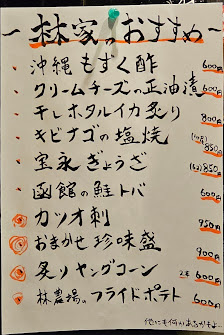 林家のおすすめ
沖縄もずく酢 600円
クリームチーズの正油漬 600円
干しホタルイカ炙り 800円
キビナゴの塩焼 850
宝永ぎょうざ (6ヶ) 850
函館の鮭トバ 600円
カツオ刺 950円
おまかせ珍味盛 900円
炙りヤングコーン 2本 600円
林農場のフライドポテト 600円
他にも何かあるかもよ